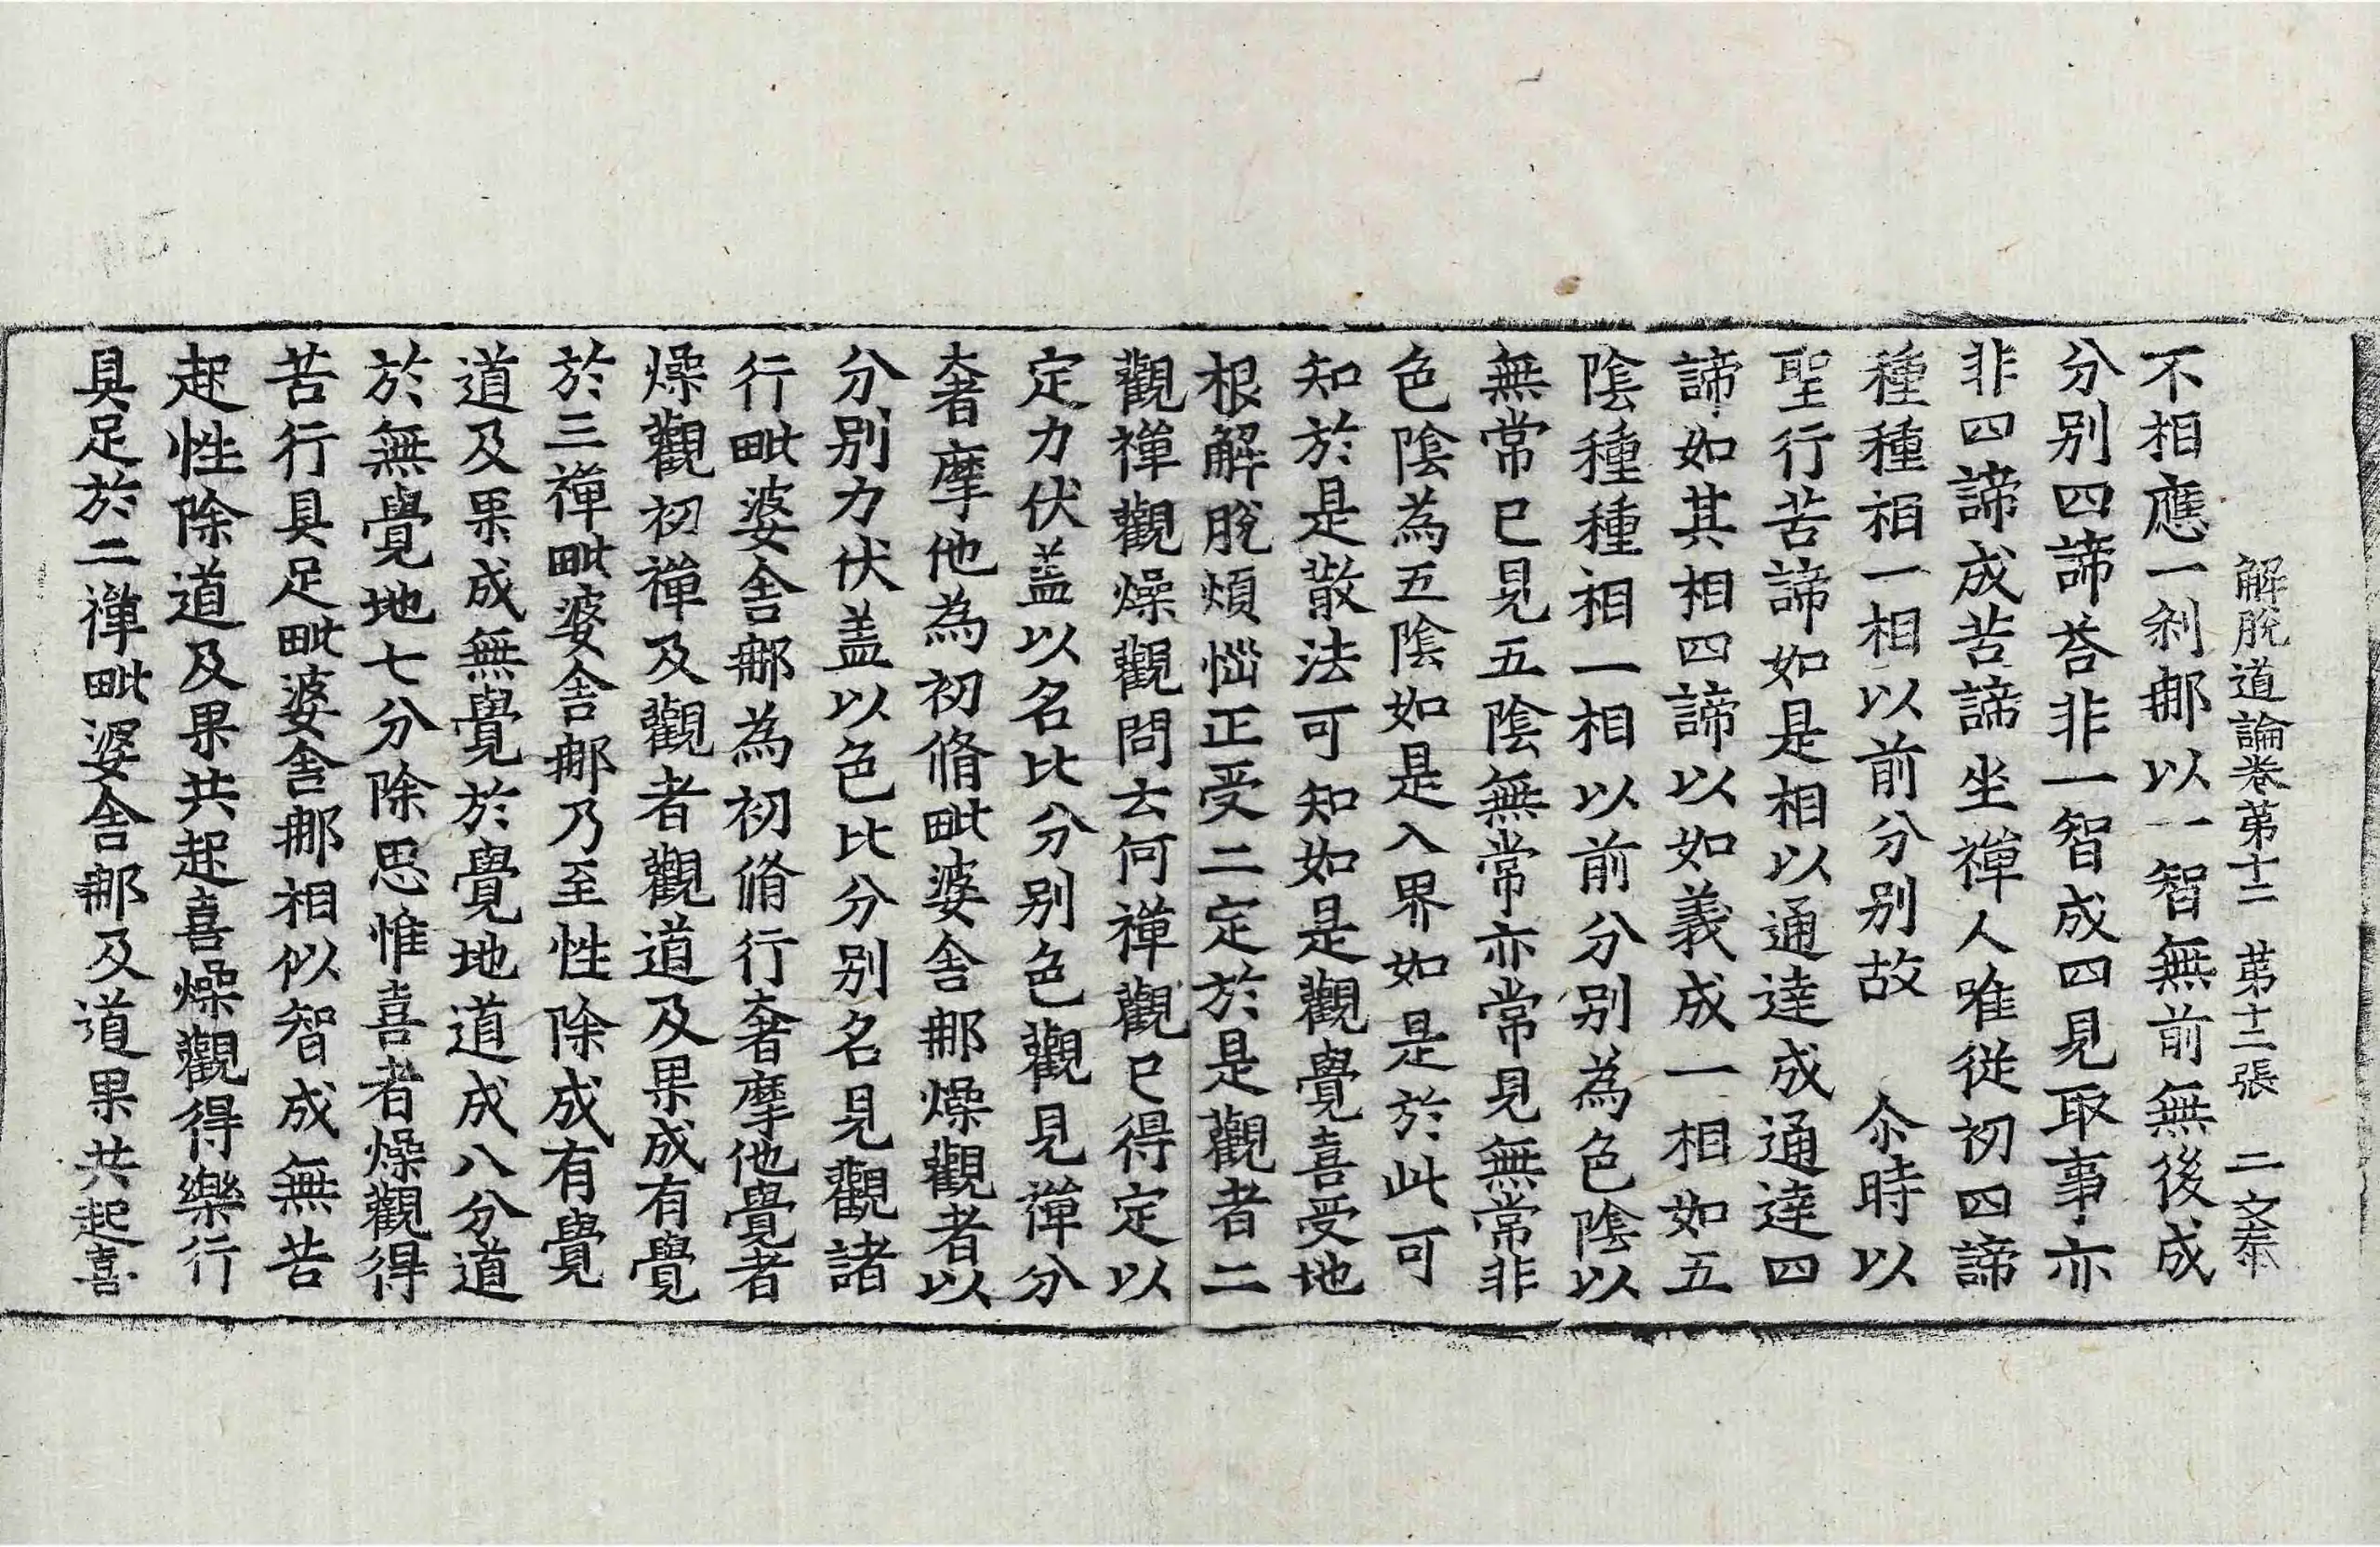 解脫道論卷第十二 第十二張 二文泰
不相應一刹那以一智無前無後成
分别四諦荅非一智成四見取事亦
非四諦成苦諦坐禪人唯從初四諦
種種相一相以前分别故 尒時以
聖行苦諦如是相以通達成通達四
諦如其相四諦以如義成一相如五
陰種種相一相以前分别為色陰以
無常已見五陰無常亦常見無常非
色陰為五陰如是入界如是於此可
知於是散法可知如是觀覺喜受地
根解脫煩惱正受二定於是觀者二
觀禪觀燥觀問云何禪觀已得定以
定力伏盖以名比分别色觀見禪分
奢摩他為初脩毗婆舍那燥觀者以
分别力伏盖以色比分别名見觀諸
行毗婆舍那為初脩行奢摩他覺者
燥觀初禪及觀者觀道及果成有覺
於三禪毗婆舍那乃至性除成有覺
道及果成無覺於覺地道成八分道
於無覺地七分除思惟喜者燥觀得
苦行具足毗婆舍那相似智成無苦
起性除道及果共起喜燥觀得樂行
具足於二禪毗婆舍那及道果共起喜